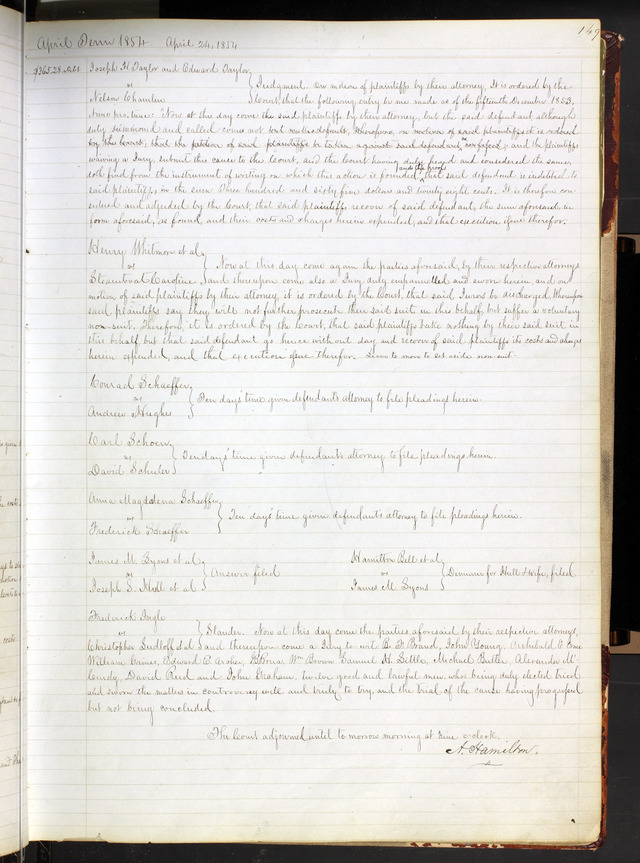 149
April Term 1854 April 24, 1854
$365.28 Debt Joseph H Taylor and Edward Taylor,
vs } Judgment. On motion of plaintiffs by their attorney, It is ordered by the
Nelson Chamlin Court, that the following entry be now made as of the fifteenth December 1853,
Nunc pro tunc: Now at this day come the said plaintiffs by their attorney, but the said defendant, although
duly summoned and called comes not but makes default, therefore, on motion of said plaintiffs it is ordered
by the Court, that the petition of said plaintiffs be taken against said defendant, as confessed, and the plaintiffs
waiving a Jury, submit this cause to the Court, and the Court having duly heard and considered the same,
and the proofs
doth find from the instrument of writing on which this action is founded, that said defendant is indebted to
said plaintiffs, in the sum Three hundred and sixty five dollars and twenty eight cents. It is therefore con-
sidered and adjudged by the Court, that said plaintiffs recover of said defendant, the sum aforesaid in
form aforesaid, as found, and their costs and charges herein expended, and that execution issue therefor.
Henry Whitmore et al,
vs } Now at this day come again the parties aforesaid, by their respective attorneys
Steamboat Caroline, and thereupon come also a Jury duly empannelled and sworn herein, and on
motion of said plaintiffs by their attorney, it is ordered by the Court, that said Jurors be discharged, thereupon
said plaintiffs say they will not further prosecute their said suit in this behalf, but suffer a voluntary
non-suit. Therefore, it is ordered by the Court, that said plaintiffs take nothing by their said suit in
this behalf but that said defendant go hence without day and recover of said plaintiffs its costs and charges
herein expended, and that execution issue therefor. Leave to move to set aside non-suit.
Conrad Schaeffer,
vs } Ten days' time given defendant's attorney to file pleadings herein.
Andrew Hughes
Carl Schoen,
vs } Ten days' time given defendant's attorney to file pleadings herein.
David Schuler
Anna Magdalena Schaeffer,
vs } Ten days' time given defendant's attorney to file pleadings herein.
Frederick Schaeffer
James M. Lyons et al, Hamilton Bell et al
vs } Answer filed vs } Demurrer for Hull & Wife, filed.
Joseph S. Hull et al James M. Lyons
Frederick Ingle
vs } Slander. Now at this day come the parties aforesaid by their respective attorneys,
Christopher Ludloff et al and thereupon come a Jury to wit: John Young, Archibald
William Brown Samuel H. Settle, Michael Butler, Alexander Mc
Curdy, David Reed and John Graham, twelve good and lawful men, who being duly elected tried
and sworn the matters in controversy well and truly to try, and the trial of the cause having progressed
but not being concluded.
The Court adjourned until to morrow morning at nine o'clock.
A. Hamilton.